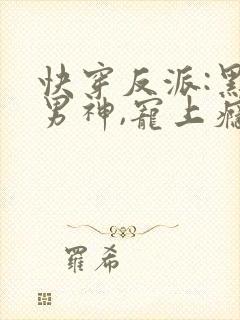 快穿反派:黑
男神,宠上瘾
羅希